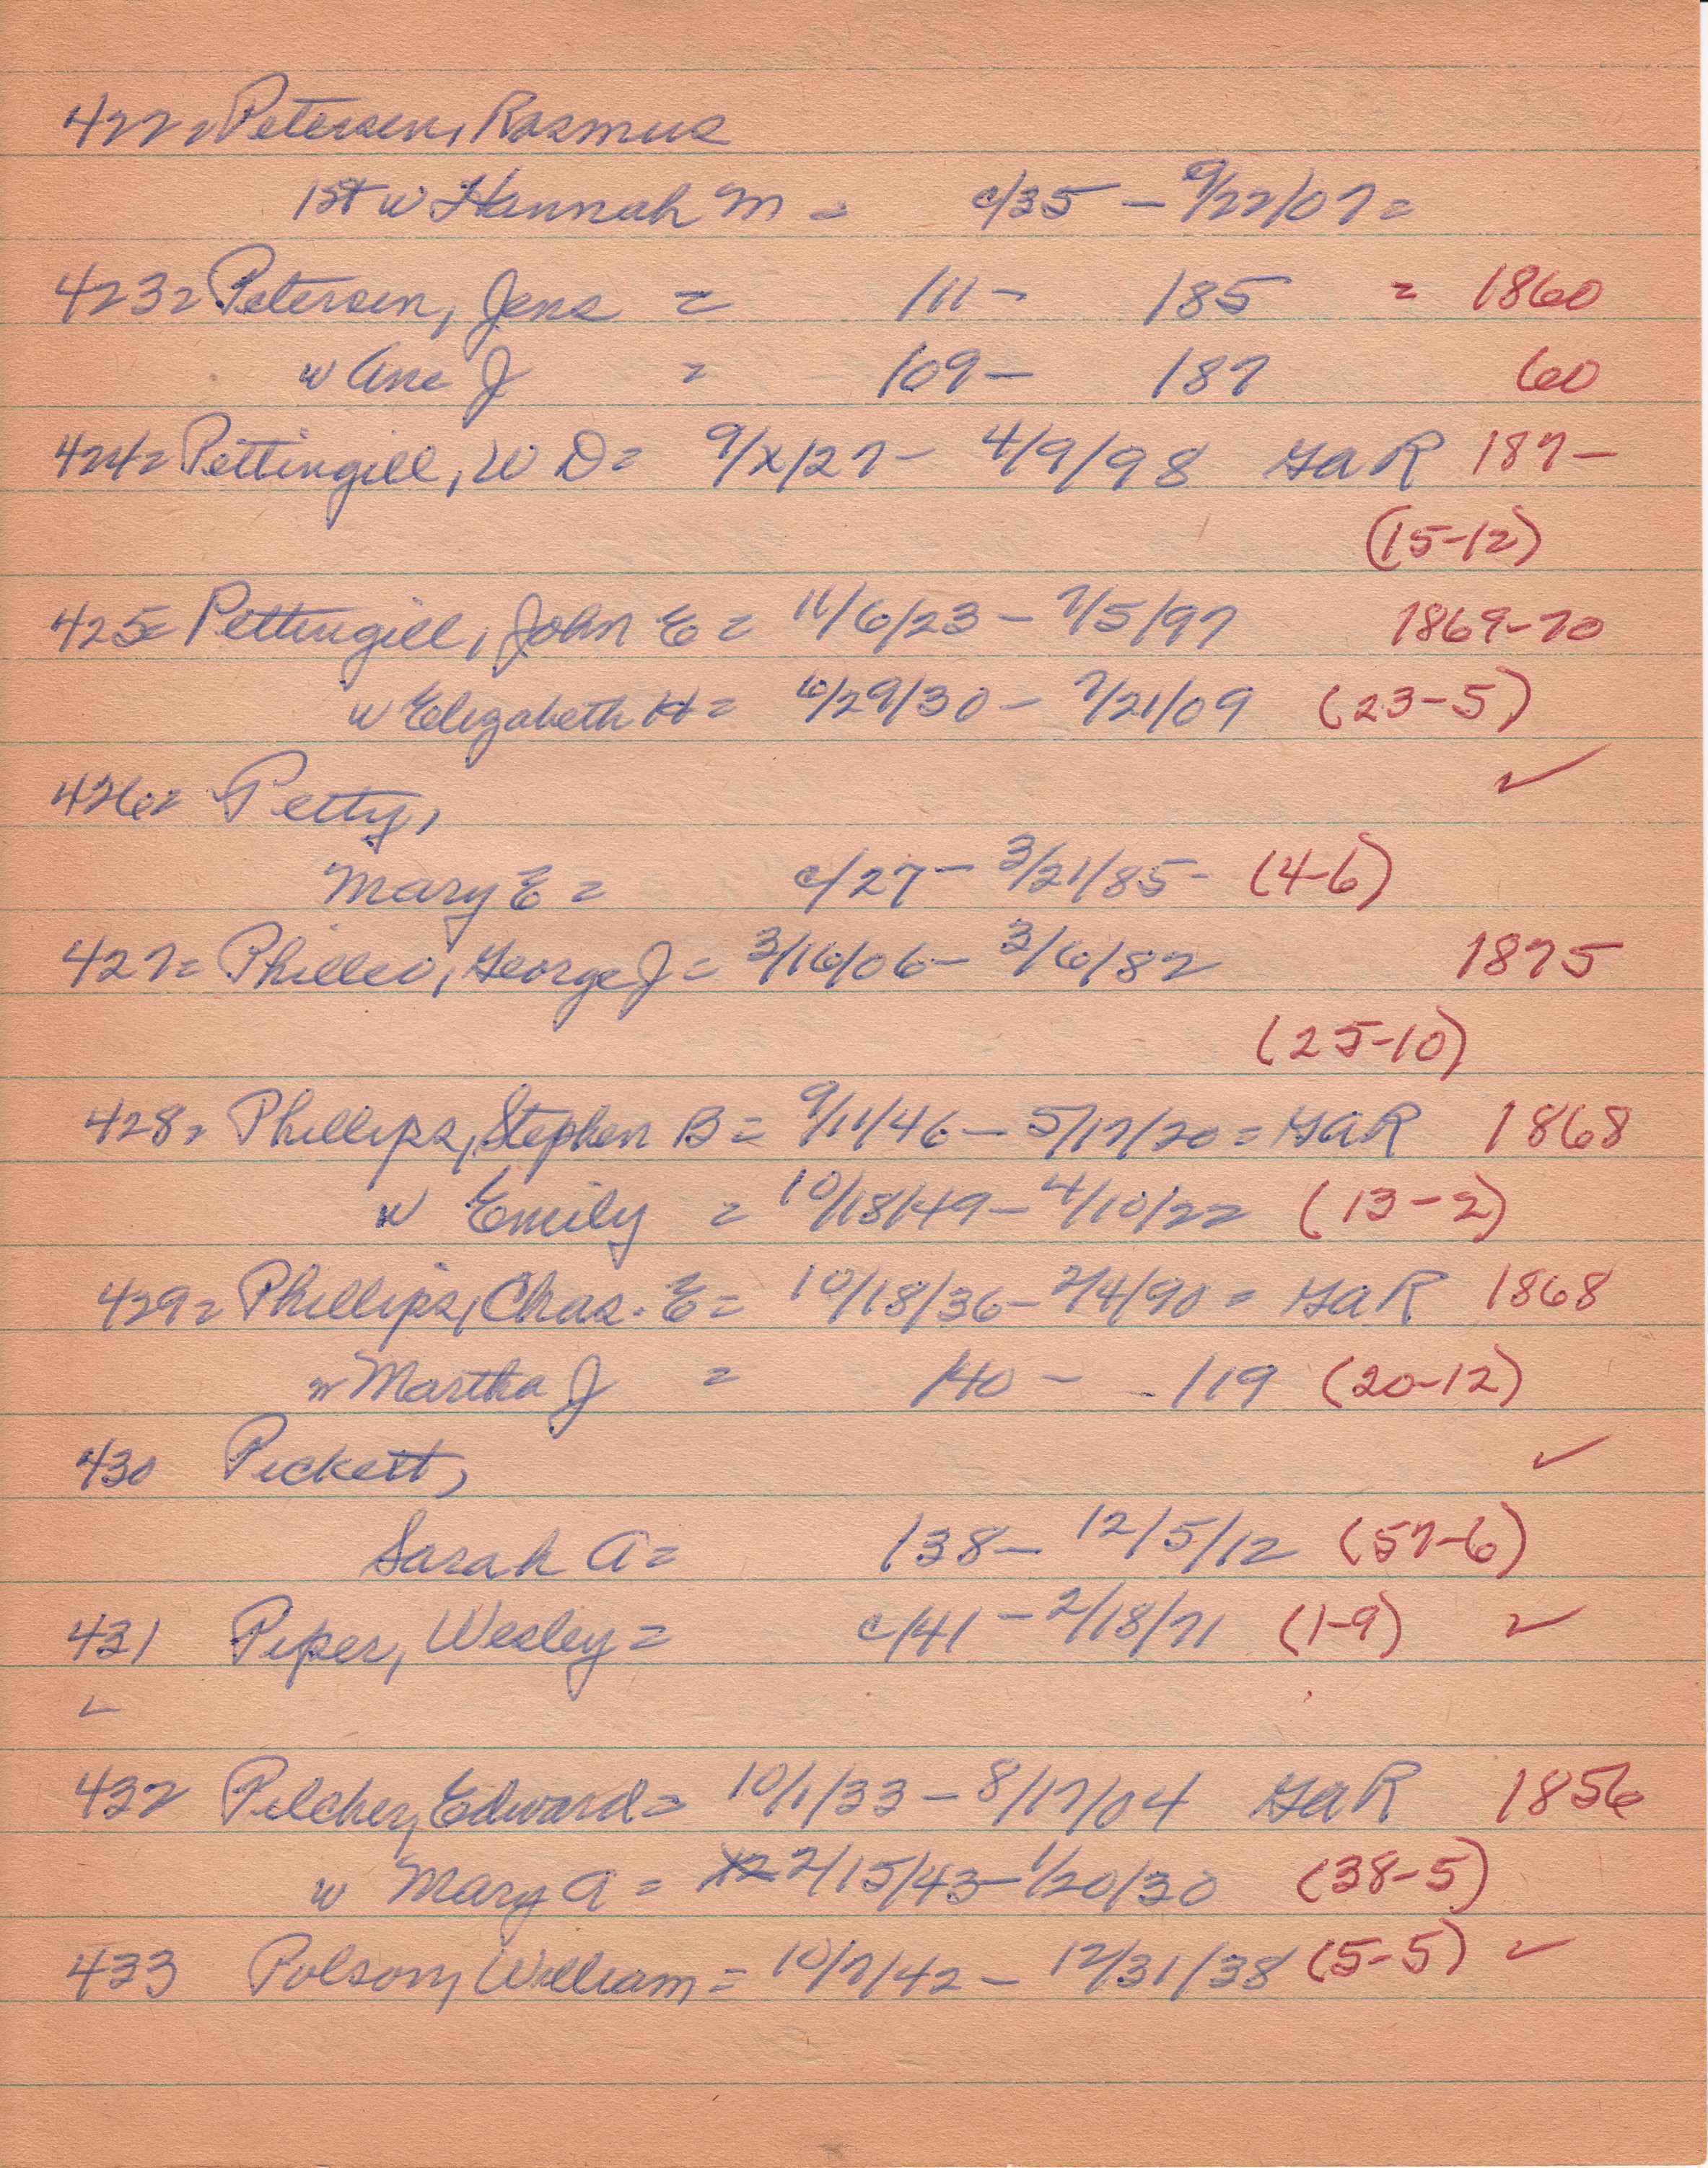 422= Petersen, Rasmus
1st w Hannah M = c/35 - 9/22/07 =
423= Petersen, Jens = /11 - /85 = 1860
w Ane J = /09 - /87 60
424= Pettingill, W D = 9/x/27 - 4/9/98 GAR 187-
(15-12)
425= Pettingill, John E = 11/6/23 - 7/5/97 1869-70
w Elizabeth H = 6/29/30 - 7/21/09 (23-5)
426= Petty, ✓
Mary E = c/27 - 3/21/85 - (4-6)
427= Philleo, George J = 3/16/06 - 3/6/82 1875
(25-10)
428= Phillips, Stephen B = 9/11/46 - 5/17/20 = GAR 1868
w Emily = 10/18/49 - 4/10/22 (13-2)
429= Phillips, Chas. E = 10/18/36 - 2/4/90 = GAR 1868
w Martha J = /40 - /19 (20-12)
430 Pickett, ✓
Sarah A = /38 - 12/5/12 (57-6)
431 Piper, Wesley = c/41 - 2/18/71 (1-9) ✓
✓
432 Pilcher, Edward = 10/1/33 - 8/17/04 GAR 1856
w Mary A = 2/15/43 - 1/20/30 (38-5)
433 Polson, William = 10/7/42 - 12/31/38 (5-5) ✓